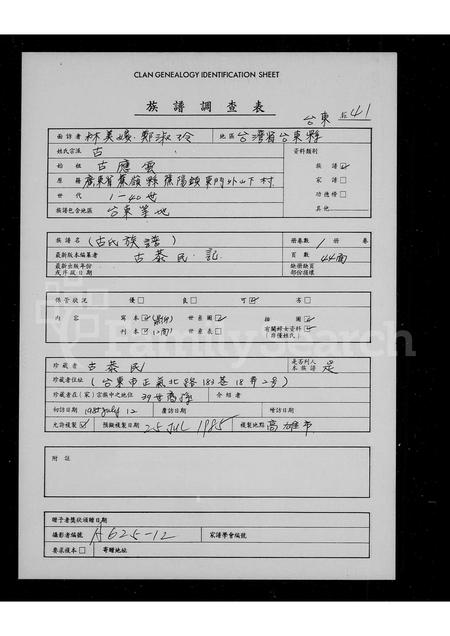 CLAN GENEALOGY IDENTIFICATION SHEET
族譜調查表
台東 41
面訪者 林美媛.鄭淑玲 地區 台灣省台東縣
姓氏宗派 古 資料類別
始祖 古應雲 族譜☑
原籍 廣東省蕉嶺縣蕉陽鎮東門外山下村 家譜□
世代 1-40世 功德榜□
族譜包含地區 台東等地 其他
族譜名 (古氏族譜) 冊卷數 1 冊 卷
最新版本編纂者 古恭民.記 頁數 44面
最新出版年份或序跋日期 缺冊缺頁部份描寫
保管狀況 優□ 良□ 可☑ 劣□
內容 寫本☑ 世系圖☑ 插圖☑
刊本☑ 世系表□ 有關婦女資料☑ (非僅姓氏)
珍藏者 古恭民 是否列入本族譜 是
珍藏者住址 (台東市正氣北路183巷18弄2號)
珍藏者在(家)宗族中之地位 39世裔孫 介紹者
初訪日期 1985 July 12 覆訪日期 增訪日期
允許複製☑ 預擬複製日期 25 JUL 1985 複製地點 高雄市
附註
贈予者獎狀頒贈日期
攝影者編號 A625-12 家譜學會編號
要求複本□ 寄贈地址
FamilySearch